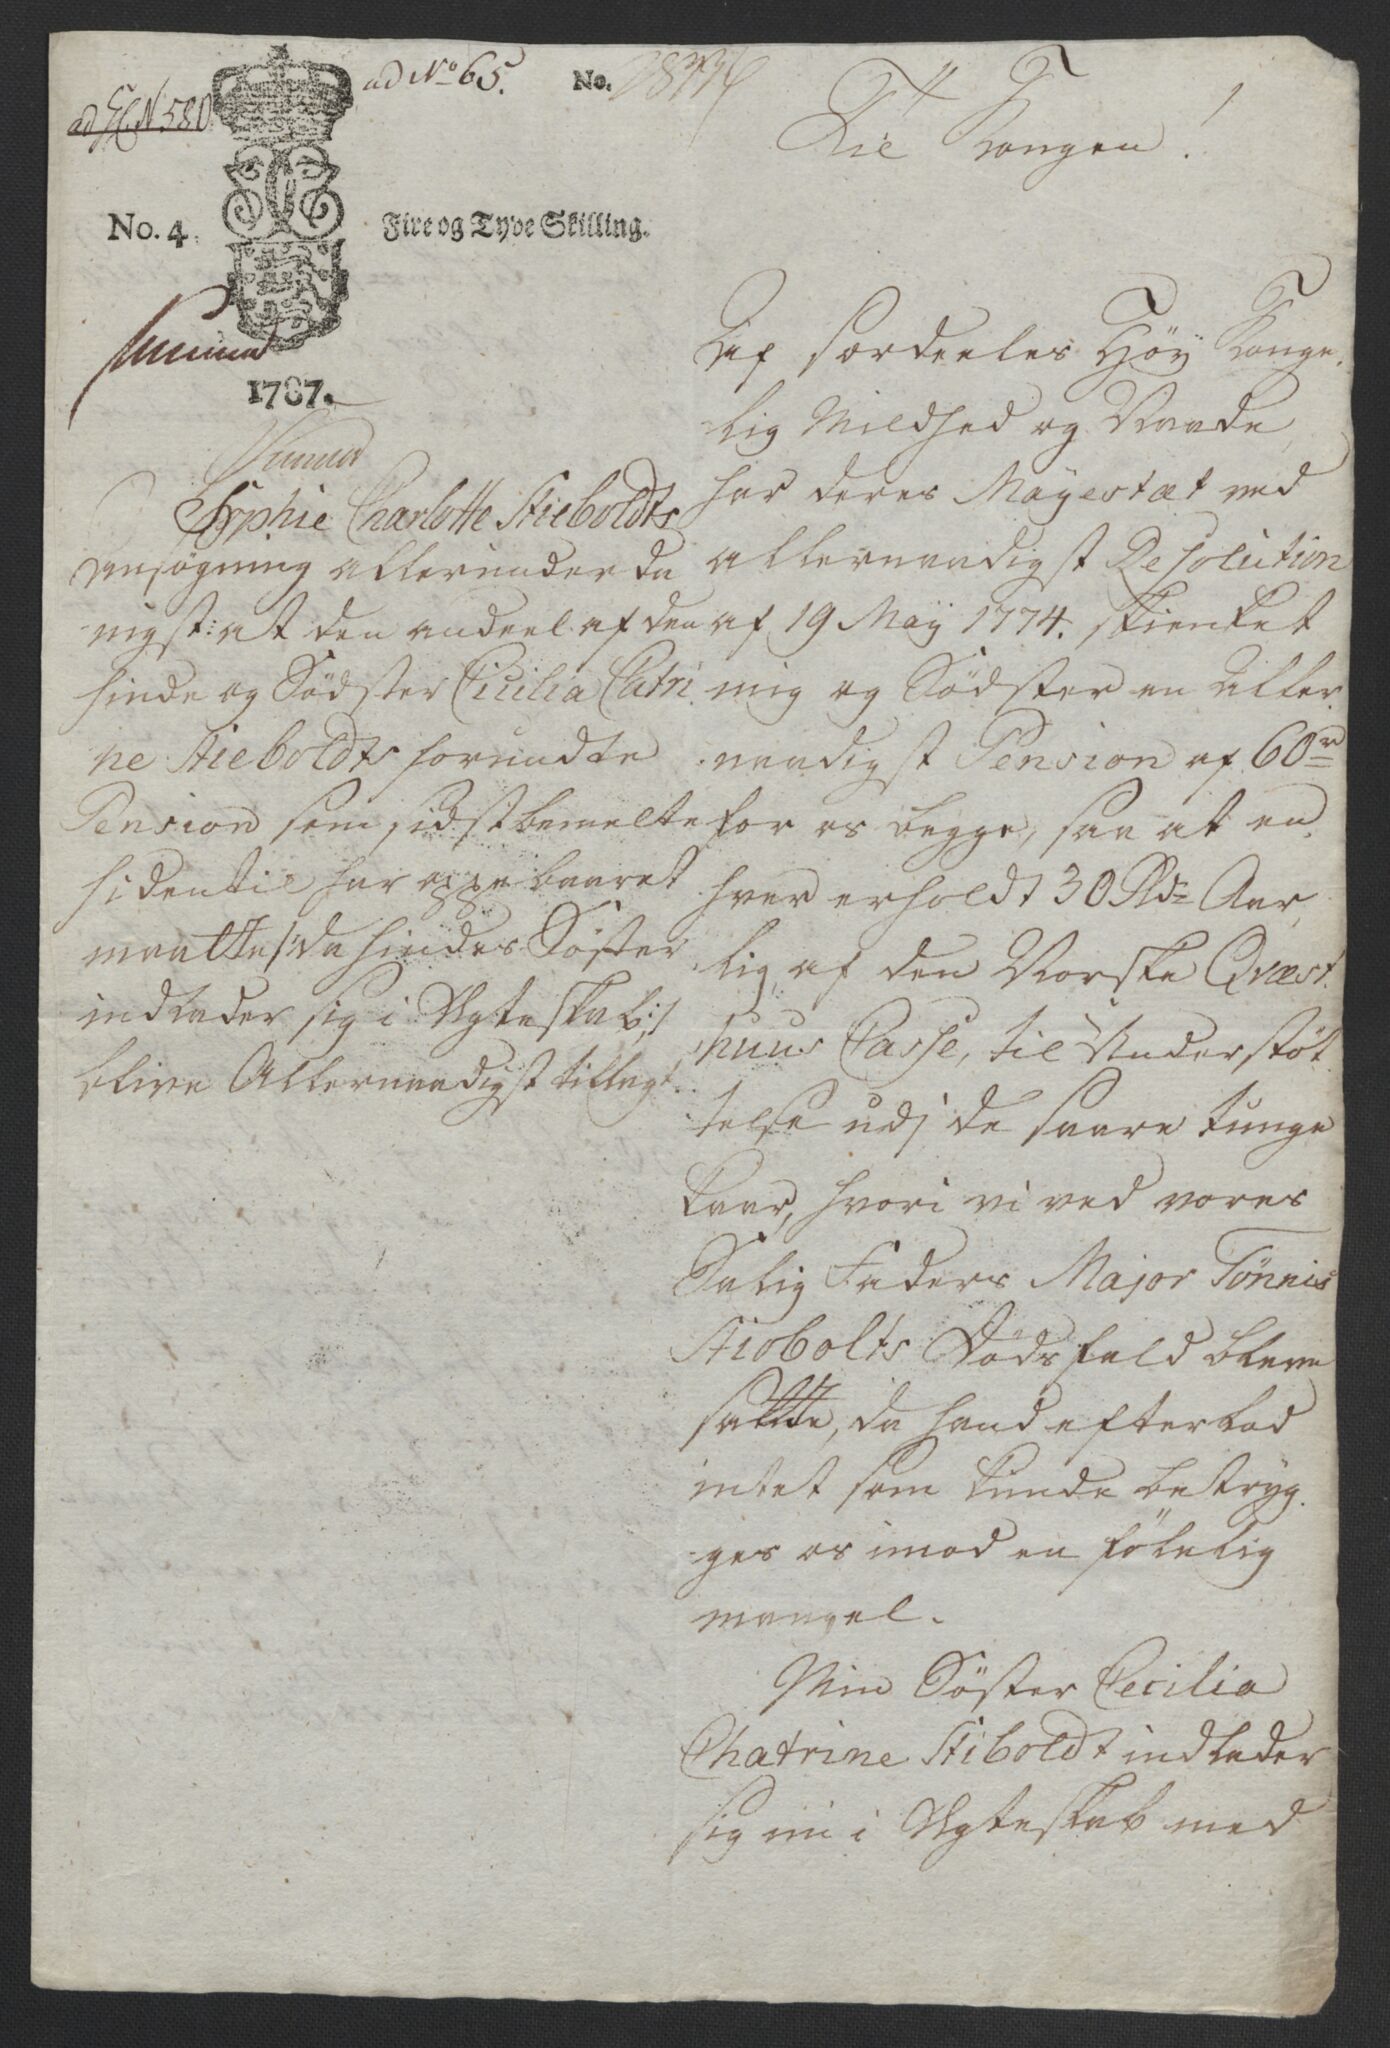 ad No 65.
No.
Til Kongen!
No. 4
Fire og Tyve Skilling.
1787.
Sophie Charlotte Stieboldts
ansøgning allerunderda
nigst: at den andeel af den
hinde og Södster Cicilia Catri
ne Stieboldts forundte
Pension som sidstbemelte
hidentil har oppebaaret
maatte /: da hindes Söster
indlader sig i Ægteskab :/
blive Allernaadigst tillagt
Af særdeeles Høy Konge
lig Mildhed og Naade
har deres Mayestæt ved
allernaadigst Resolution
af 19 Maÿ 1774. skienket
mig og Södster en Aller
naadigst Pension af 60 r
for os begge, saa at en
hver erholdt 30 Rdr Aar
lig af den Norske Qvæst
huus Casse, til Understöt
telse udj de saare tunge
Kaar, hvori vi ved vores
Salig Faders Major Tönnis
Stiobolts Dødsfald bleve
satte, da hand efterlod
intet som kunde betryg
ges os imod en følelig
mangel.
Min Söster Cecilia
Chatrine Stiboldt indlader
sig nu i Ægteskab med